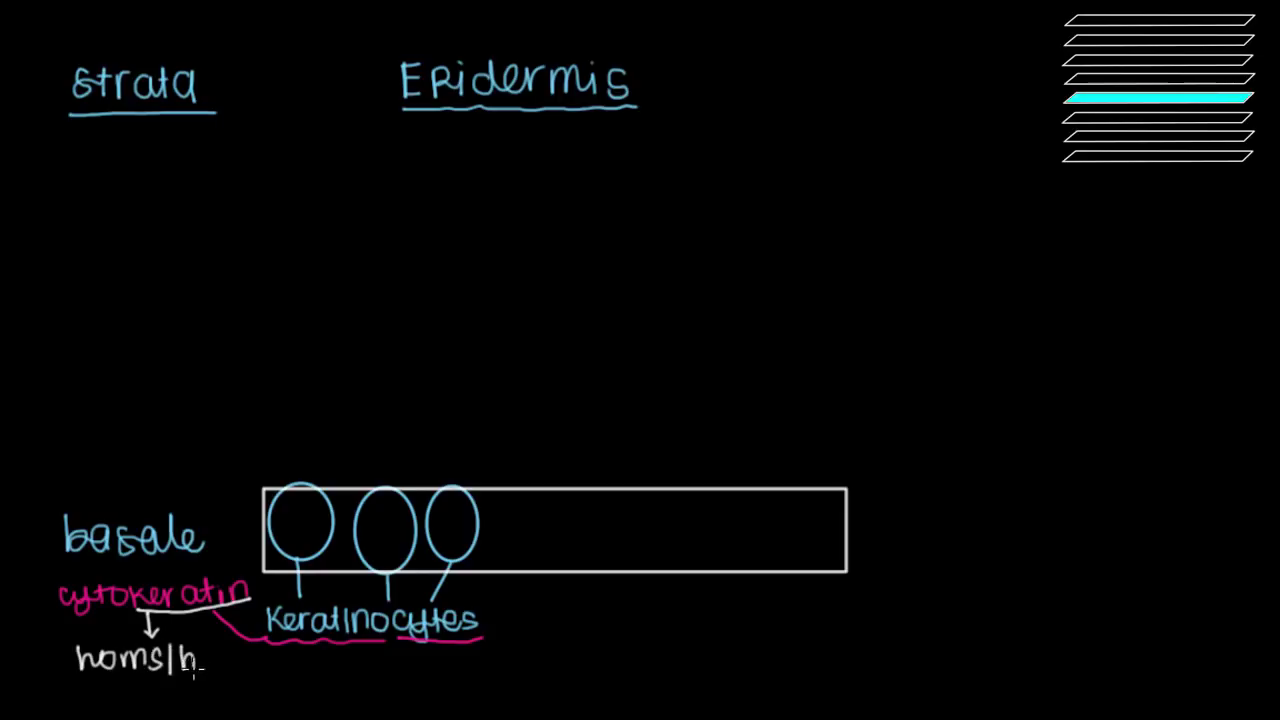 strata Epidermis
basale
cytokeratin
keratinocytes
horns/h